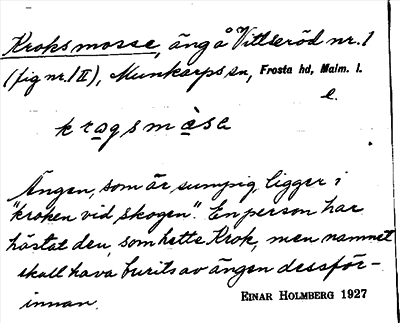 Kroksmosse, äng å Vittseröd nr. 1
(fig nr. 1 II), Munkarps sn, Frosta hd, Malm. l.
l.
krogsmåsa
Ängen, som är sumpig, ligger i
"kroken vid skogen". En person har
hästat den, som hette Krok, men namnet
skall hava burits av ängen dessför-
innan.
EINAR HOLMBERG 1927